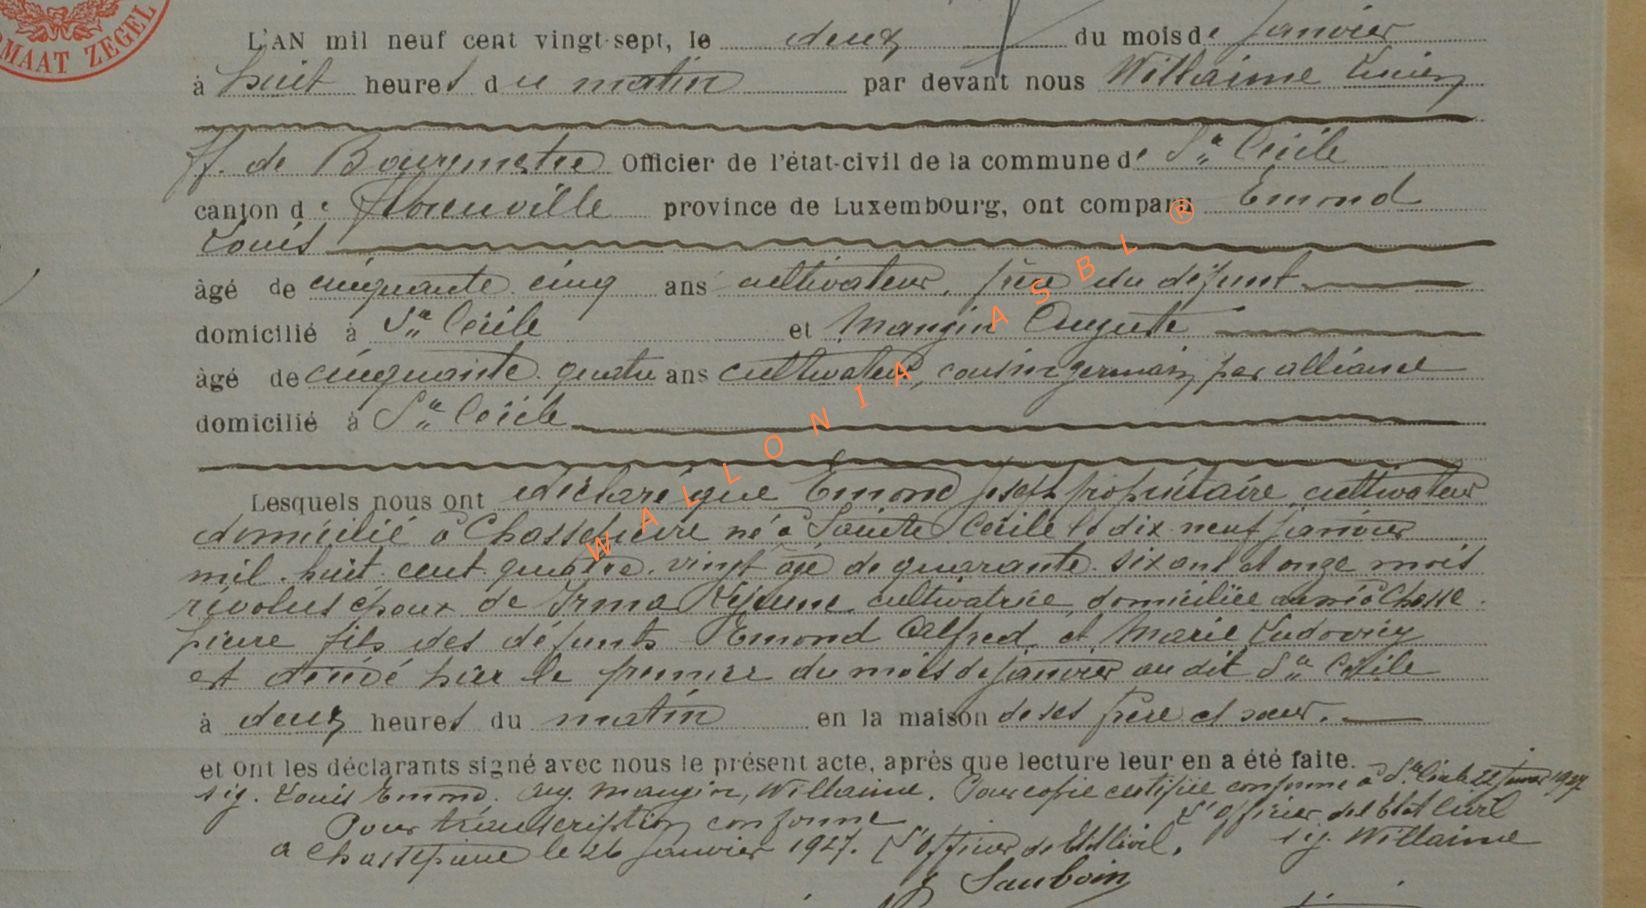 MAAT ZEGEL
L'AN mil neuf cent vingt-sept, le deux du mois de janvier
à huit heures du matin par devant nous Willaime Lucien
ff. de Bourgmestre Officier de l'état-civil de la commune de Ste Cécile
canton de Florenville province de Luxembourg, ont comparu Emond
Louis
âgé de cinquante cinq ans cultivateur, frère du défunt
domicilié à Ste Cécile et Mangin Auguste
âgé de cinquante quatre ans cultivateur, cousin germain par alliance
domicilié à Ste Cécile
Lesquels nous ont déclaré que Emond Joseph propriétaire cultivateur
domicilié à Chassepierre né à Sainte Cécile le dix neuf janvier
mil huit cent quatre vingt âgé de quarante six ans et onze mois
révolus époux de Irma Lejeune cultivatrice, domiciliée à Chasse
pierre fils des défunts Emond Alfred et Marie Ludovicy
est décédé hier le premier du mois de janvier au dit Ste Cécile
à deux heures du matin en la maison de ses frère et sœur.
et ont les déclarants signé avec nous le présent acte, après que lecture leur en a été faite.
sig. Louis Emond. Aug. Mangin, Willaime. Pour copie certifiée conforme à Ste Cécile 22 janvier 1927
L'Officier de l'Etat Civil
Pour transcription conforme
sig. Willaime
à Chassepierre le 26 janvier 1927. L'Officier de l'Etat Civil,
J Sauboin
WALLONIA ASBL ®